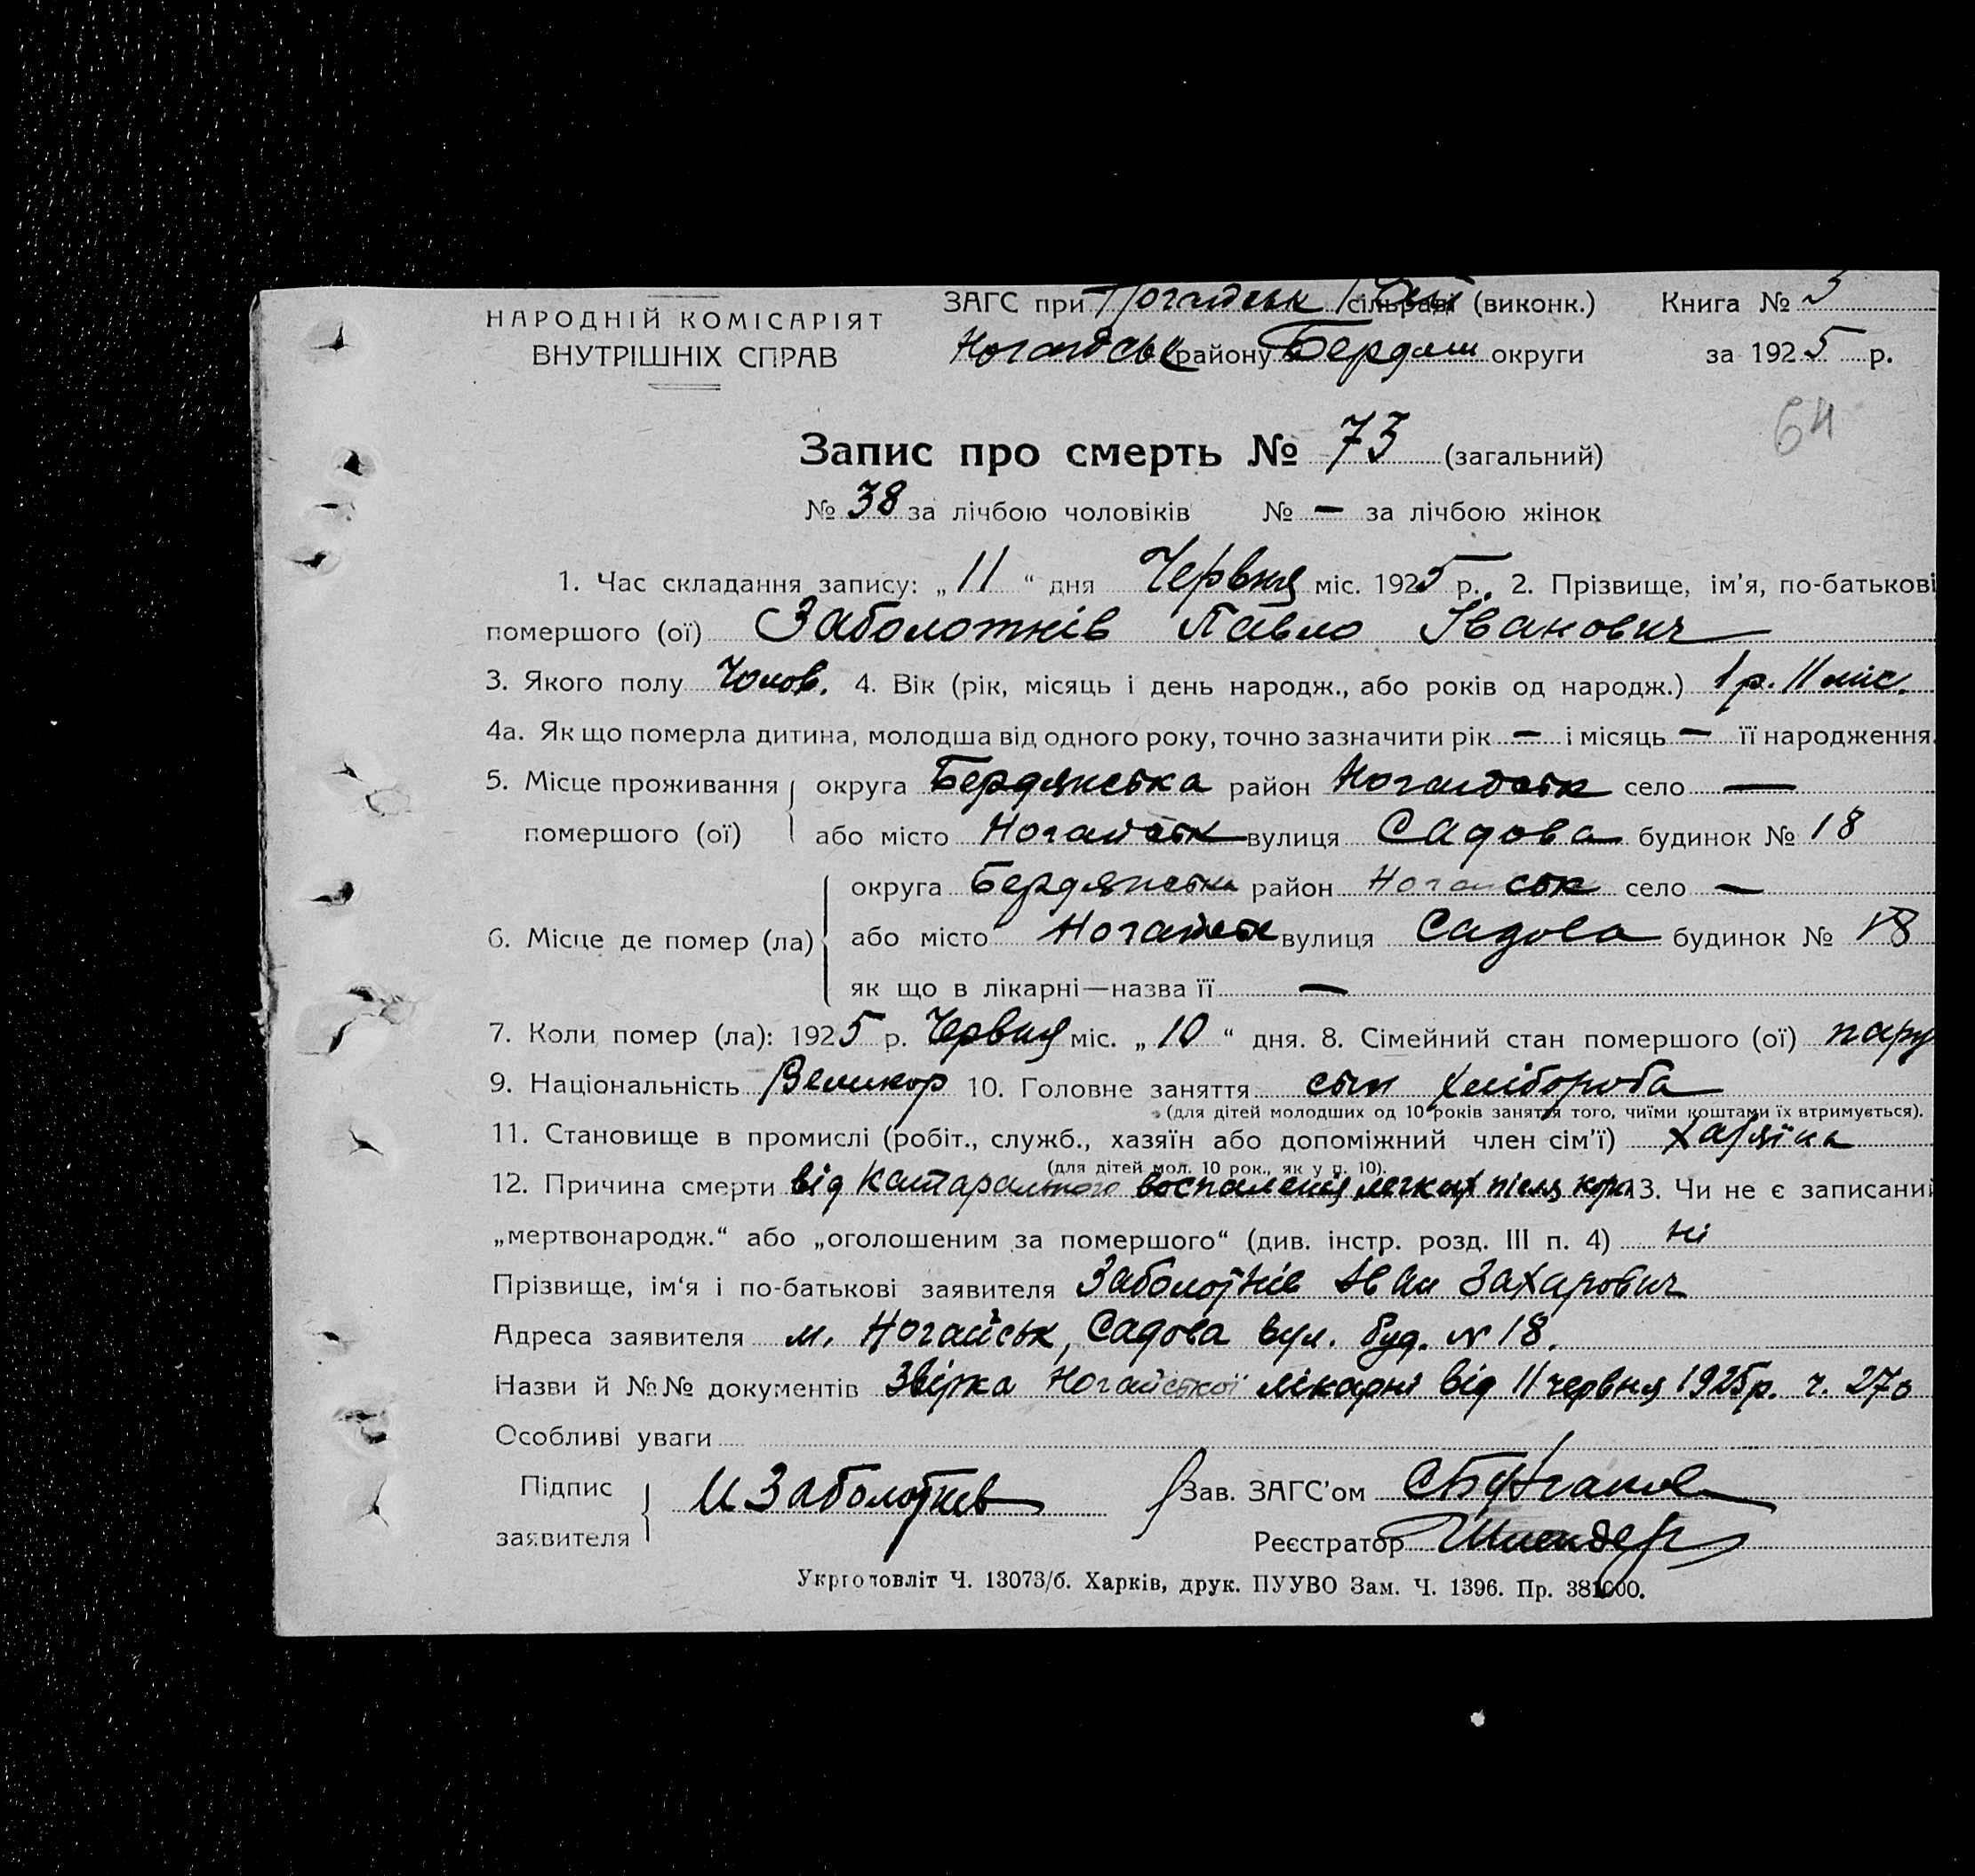 НАРОДНІЙ КОМІСАРІЯТ
ВНУТРІШНІХ СПРАВ
ЗАГС при Ногайськ сільраді (виконк.)
Ногайськ району Бердянш округи
Книга № 3
за 1925 р.
64
Запис про смерть № 73 (загальний)
№ 38 за лічбою чоловіків № — за лічбою жінок
1. Час складання запису: „11“ дня Червня міс. 1925 р. 2. Прізвище, ім'я, по-батькові
помершого (ої) Заболотнів Павло Іванович
3. Якого полу Чолов. 4. Вік (рік, місяць і день народж., або років од народж.) 1 р. 11 міс.
4а. Як що померла дитина, молодша від одного року, точно зазначити рік — і місяць — її народження.
5. Місце проживання округа Бердянська район Ногайськ село —
помершого (ої) або місто Ногайськ вулиця Садова будинок № 18
округа Бердянська район Ногайськ село —
6. Місце де помер (ла) або місто Ногайськ вулиця Садова будинок № 18
як що в лікарні—назва її —
7. Коли помер (ла): 1925 р. Червня міс. „10“ дня. 8. Сімейний стан помершого (ої)
9. Національність Великор 10. Головне заняття син хлібороба
(для дітей молодших од 10 років заняття того, чиїми коштами їх втримується).
11. Становище в промислі (робіт., служб., хазяїн або допоміжний член сім'ї) хазяїна
(для дітей мол. 10 рок., як у п. 10).
12. Причина смерти від Катарального воспаленія легких після кори 13. Чи не є записаний
„мертвонародж.“ або „оголошеним за помершого“ (див. інстр. розд. III п. 4) ні
Прізвище, ім'я і по-батькові заявителя Заболотнів Іван Захарович
Адреса заявителя м. Ногайськ, Садова вул. буд. № 18.
Назви й №№ документів Звірка Ногайської лікарні від 11 червня 1925р. ч. 270
Особливі уваги
Підпис
заявителя
И Заболотнев
Зав. ЗАГС'ом
Реєстратор
Укрголовліт Ч. 13073/б. Харків, друк. ПУУВО Зам. Ч. 1396. Пр. 381000.